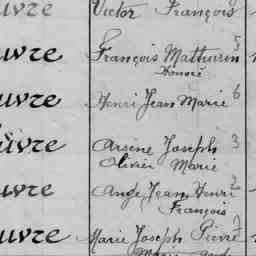 uvre Victor François
uvre François Mathurin 5
Honoré
uvre Henri Jean Marie 6
uvre Arsène Joseph 3
Olivier Marie
uvre Ange Jean Henri 2
François
uvre Marie Joseph Pierre 7
Marie